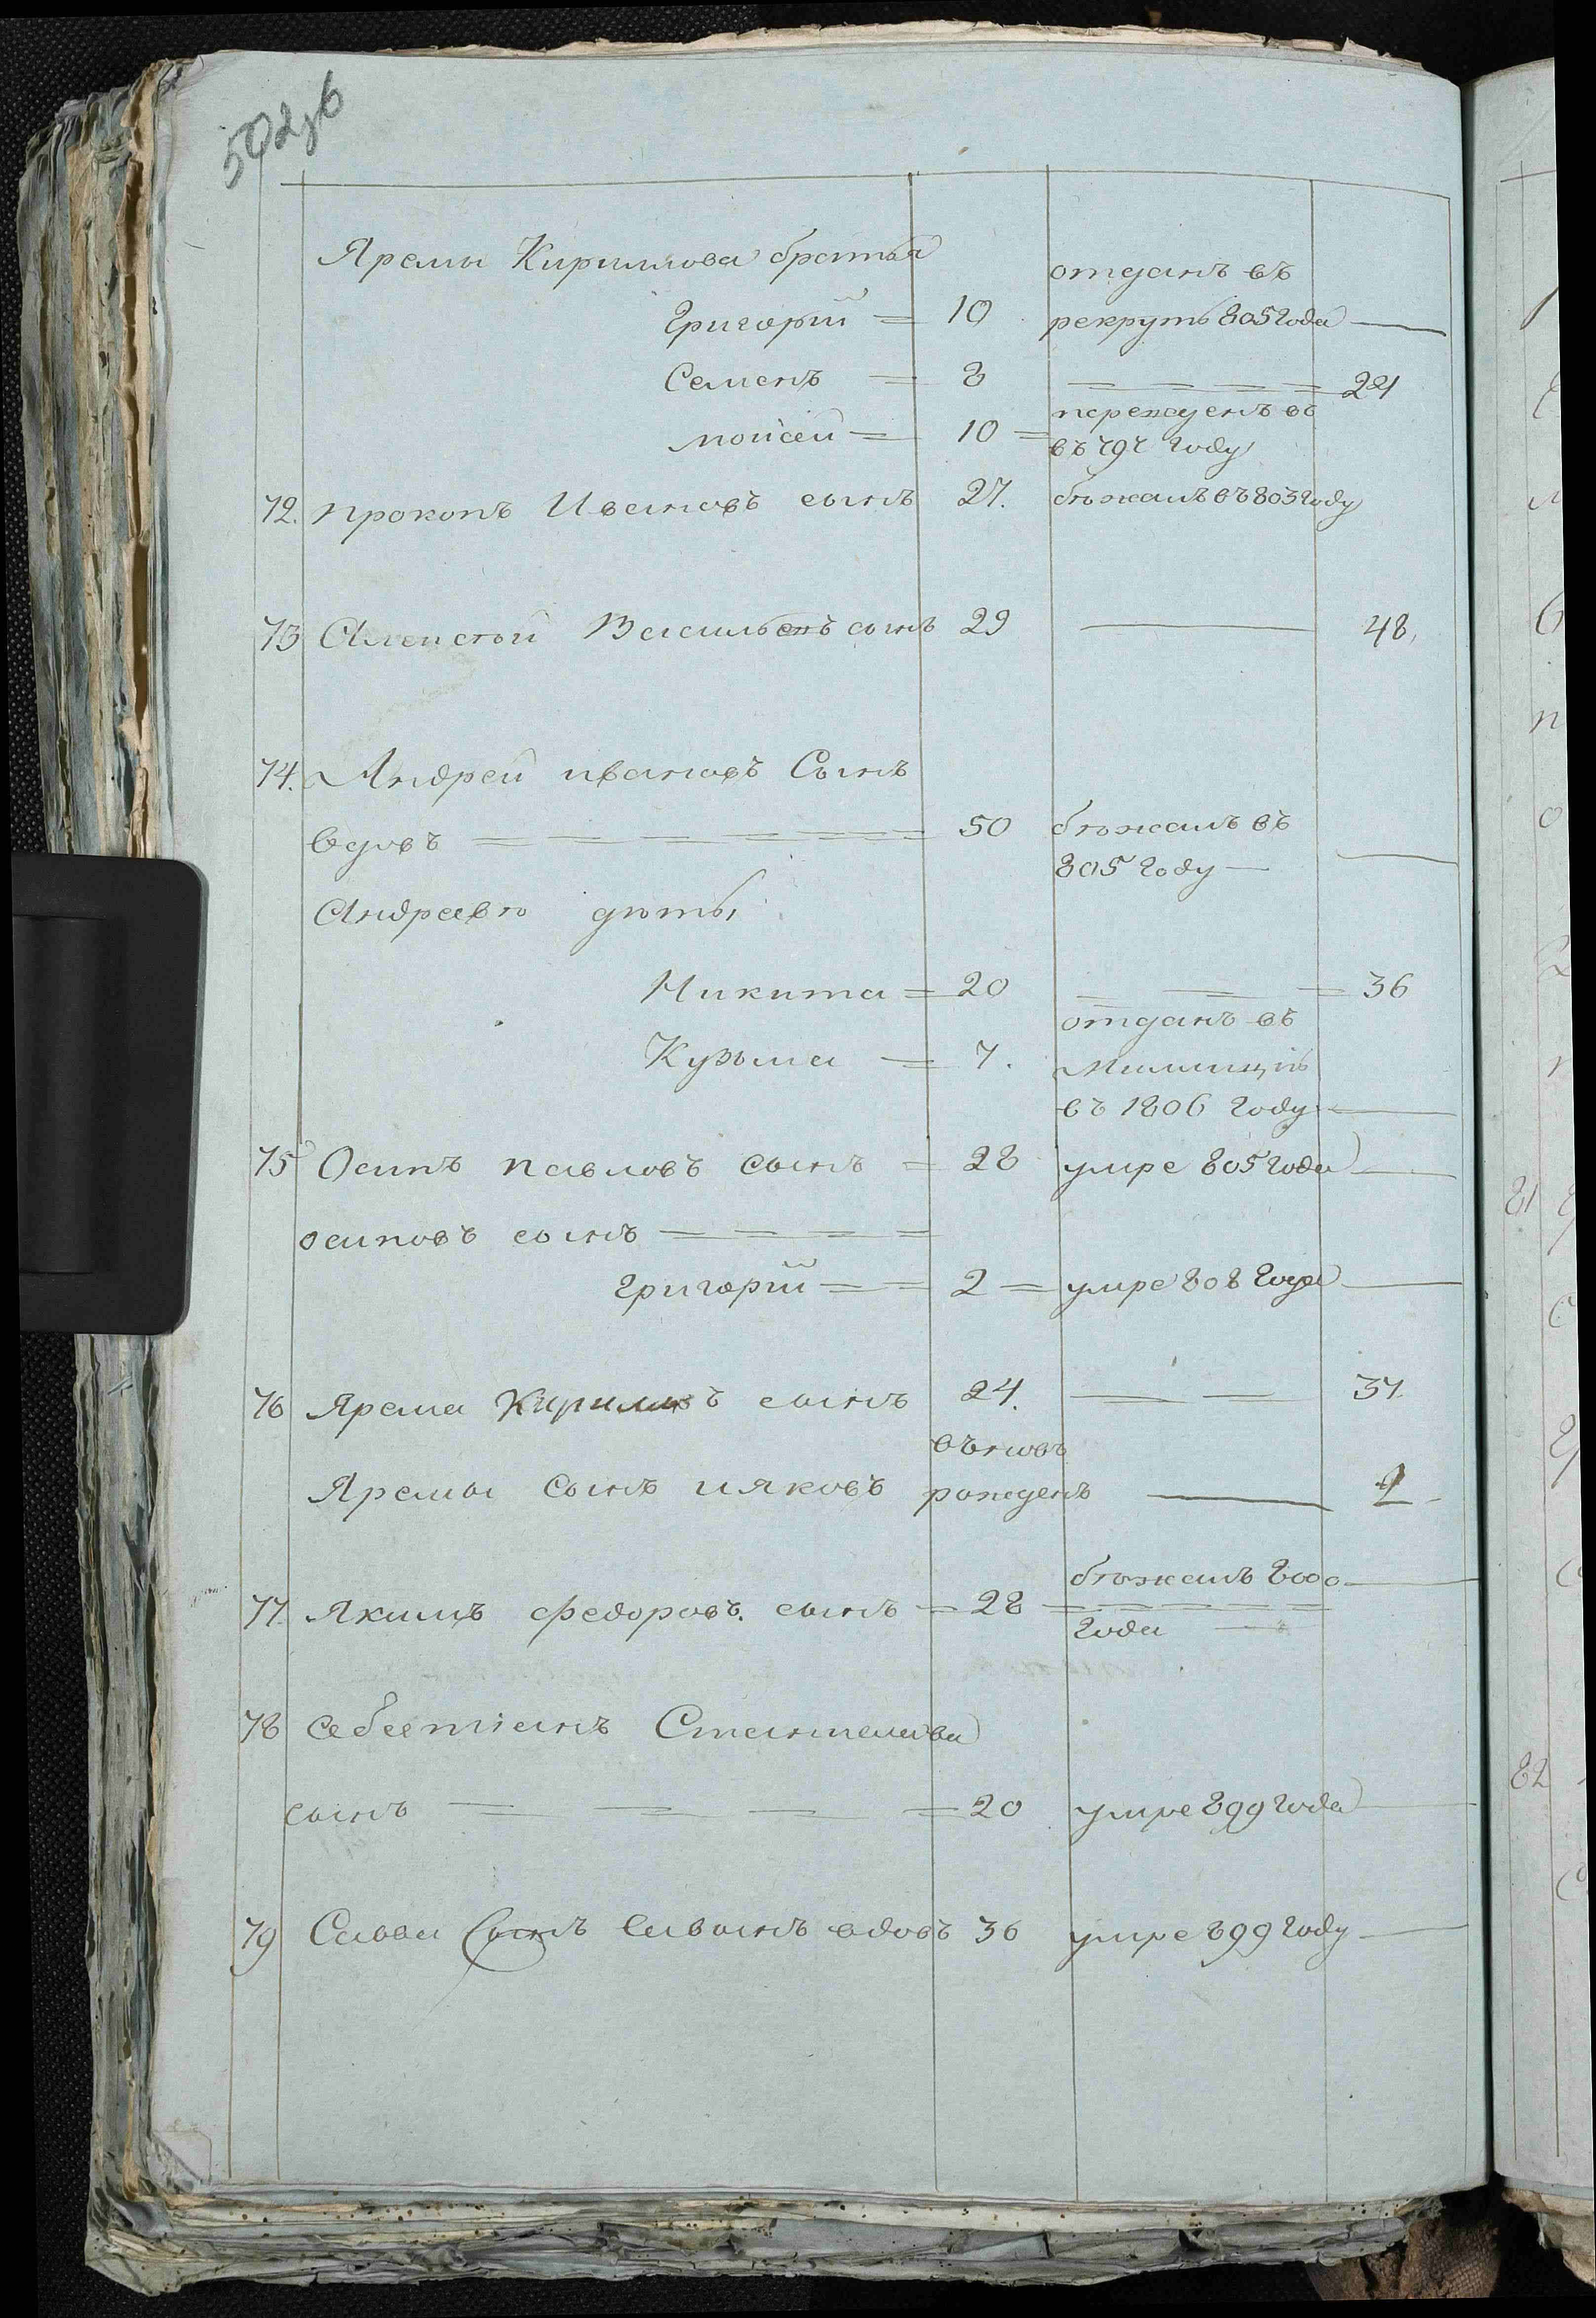 502зб
Яремы Кирилова братья
Григорій = 10 отданъ въ
рекруты 805 года —
Семенъ = 8 = = = = 24
мойсей = 10 =
въ 797 году
72. прокопъ Ивановъ сынъ 27. бѣжалъ въ 803 году
73 Алексѣй Васильевъ сынъ 29 — 48.
74. Андрей ивановъ Сынъ
вдовъ = = = = = = 50 бѣжалъ въ
805 году —
Андреевы дѣты
Никита = 20 = = = 36
Кузьма = 7. отданъ въ
милицію
въ 1806 году —
75 Осипъ павловъ сынъ = 28 умре 805 года —
осиповъ сынъ = = = =
Григорій = = 2 = умре 808 года —
76 Ярема Кириловъ сынъ 24. — — 37.
Яремы сынъ ияковъ вновъ
рожденъ — 2
77. Якимъ федоровъ. сынъ = 28 = бѣжалъ 800 —
года —
78 себестіянъ
сынъ = = = = 20 умре 899 года —
79 Савва Сынъ савинъ вдовъ 36 умре 899 году —
81
82